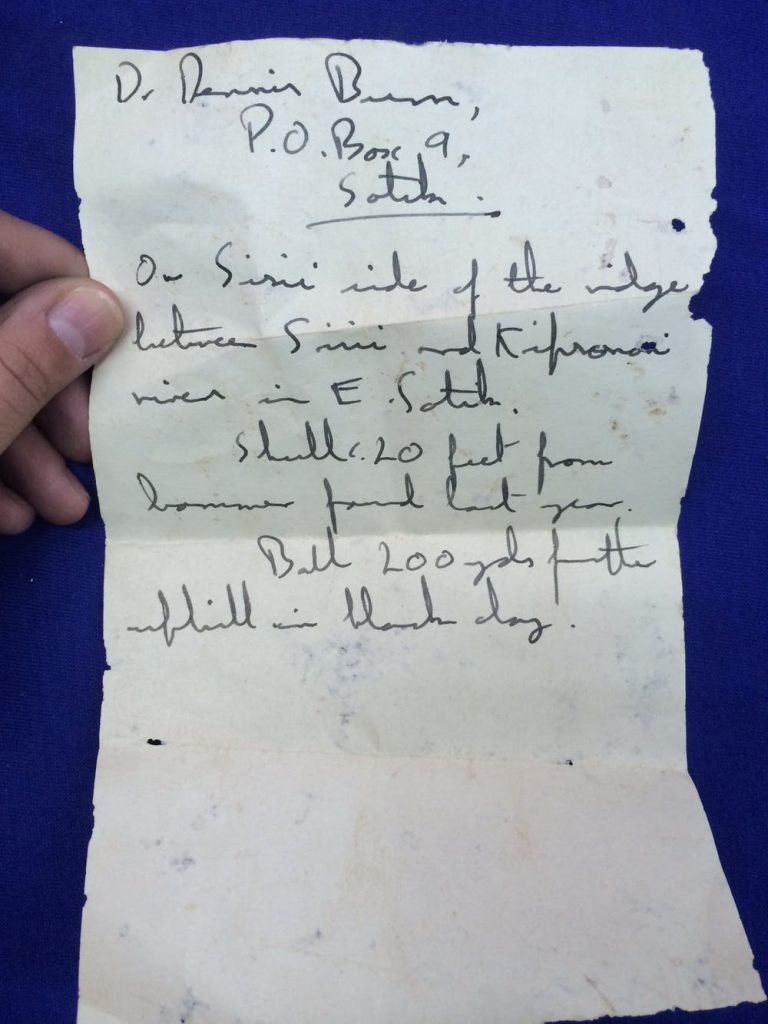 Dr Dennis Burn,
P.O. Box 9,
Sotik.
On Sisei side of the ridge
between Sisei and Kipsonoi
river in E. Sotik.
Skull c. 20 feet from
hammer found last year.
Ball 200 yds further
uphill in black clay.